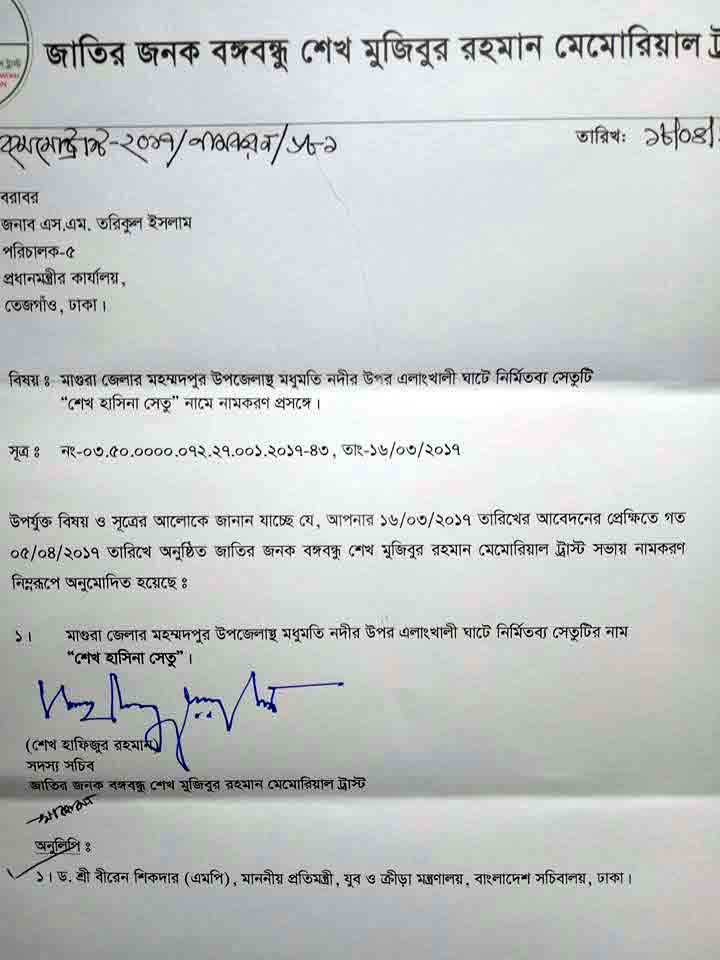 জাতির জনক বঙ্গবন্ধু শেখ মুজিবুর রহমান মেমোরিয়াল
তারিখঃ ১৮/০৪/
বরাবর
জনাব এস.এম. তরিকুল ইসলাম
পরিচালক-৫
প্রধানমন্ত্রীর কার্যালয়,
তেজগাঁও, ঢাকা।
বিষয় ঃ মাগুরা জেলার মহম্মদপুর উপজেলাস্থ মধুমতি নদীর উপর এলাংখালী ঘাটে নির্মিতব্য সেতুটি
“শেখ হাসিনা সেতু” নামে নামকরণ প্রসঙ্গে।
সূত্র ঃ নং-০৩.৫০.০০০০.০৭২.২৭.০০১.২০১৭-৪৩, তাং-১৬/০৩/২০১৭
উপর্যুক্ত বিষয় ও সূত্রের আলোকে জানান যাচ্ছে যে, আপনার ১৬/০৩/২০১৭ তারিখের আবেদনের প্রেক্ষিতে গত
০৫/০৪/২০১৭ তারিখে অনুষ্ঠিত জাতির জনক বঙ্গবন্ধু শেখ মুজিবুর রহমান মেমোরিয়াল ট্রাস্ট সভায় নামকরণ
নিম্নরূপে অনুমোদিত হয়েছে ঃ
১। মাগুরা জেলার মহম্মদপুর উপজেলাস্থ মধুমতি নদীর উপর এলাংখালী ঘাটে নির্মিতব্য সেতুটির নাম
“শেখ হাসিনা সেতু”।
(শেখ হাফিজুর রহমান)
সদস্য সচিব
জাতির জনক বঙ্গবন্ধু শেখ মুজিবুর রহমান মেমোরিয়াল ট্রাস্ট
অনুলিপি ঃ
১। ড. শ্রী বীরেন শিকদার (এমপি), মাননীয় প্রতিমন্ত্রী, যুব ও ক্রীড়া মন্ত্রণালয়, বাংলাদেশ সচিবালয়, ঢাকা।